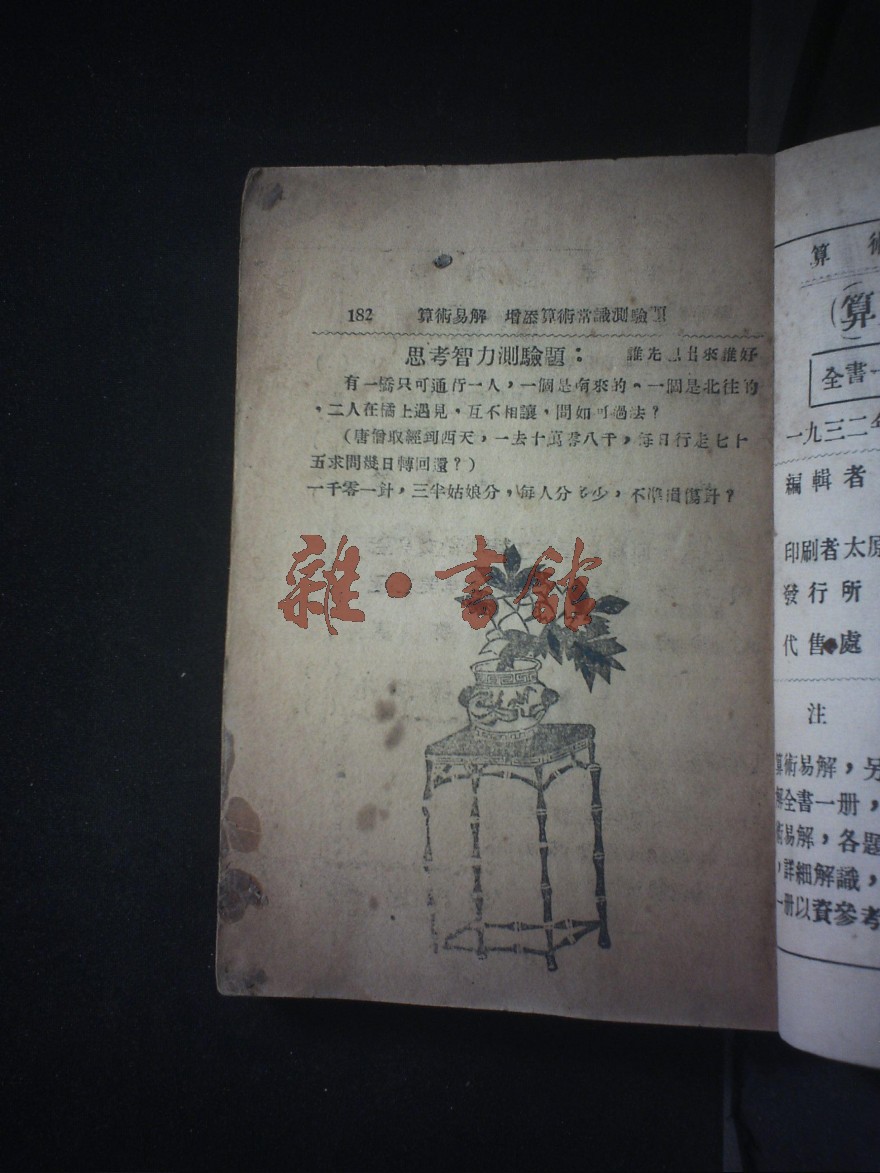 182 算術易解 增添算術常識測驗題
思考智力測驗題： 誰先思出來誰好
有一橋只可通行一人，一個是南來的、一個是北往的
，二人在橋上遇見，互不相讓，問如何過法？
（唐僧取經到西天，一去十萬零八千，每日行走七十
五求問幾日轉回還？）
一千零一針，三半姑娘分，每人分多少，不準損傷針？
雜·書館
算術
（算
全書一
一九三二年
編輯者
印刷者太原
發行所
代售處
注
算術易解，另
全書一册，
術易解，各題
，詳細解識，
一册以資參考